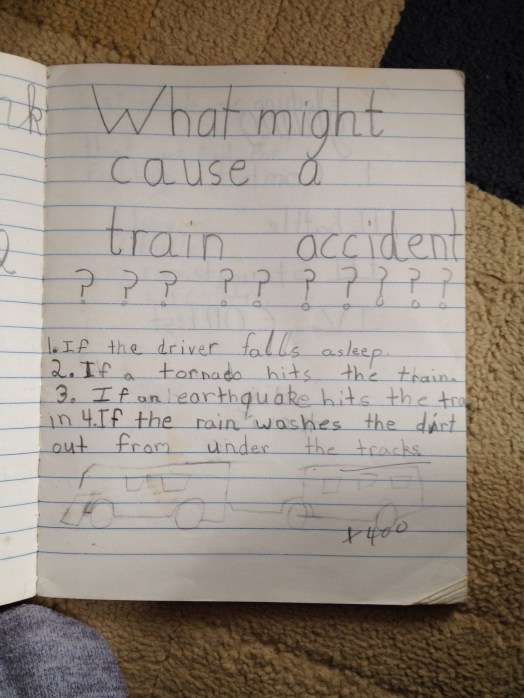 What might
cause a
train accident
? ? ? ? ? ? ? ? ? ?
1. If the driver falls asleep.
2. If a tornado hits the train.
3. If an earthquake hits the tra
in 4. If the rain washes the dirt
out from under the tracks